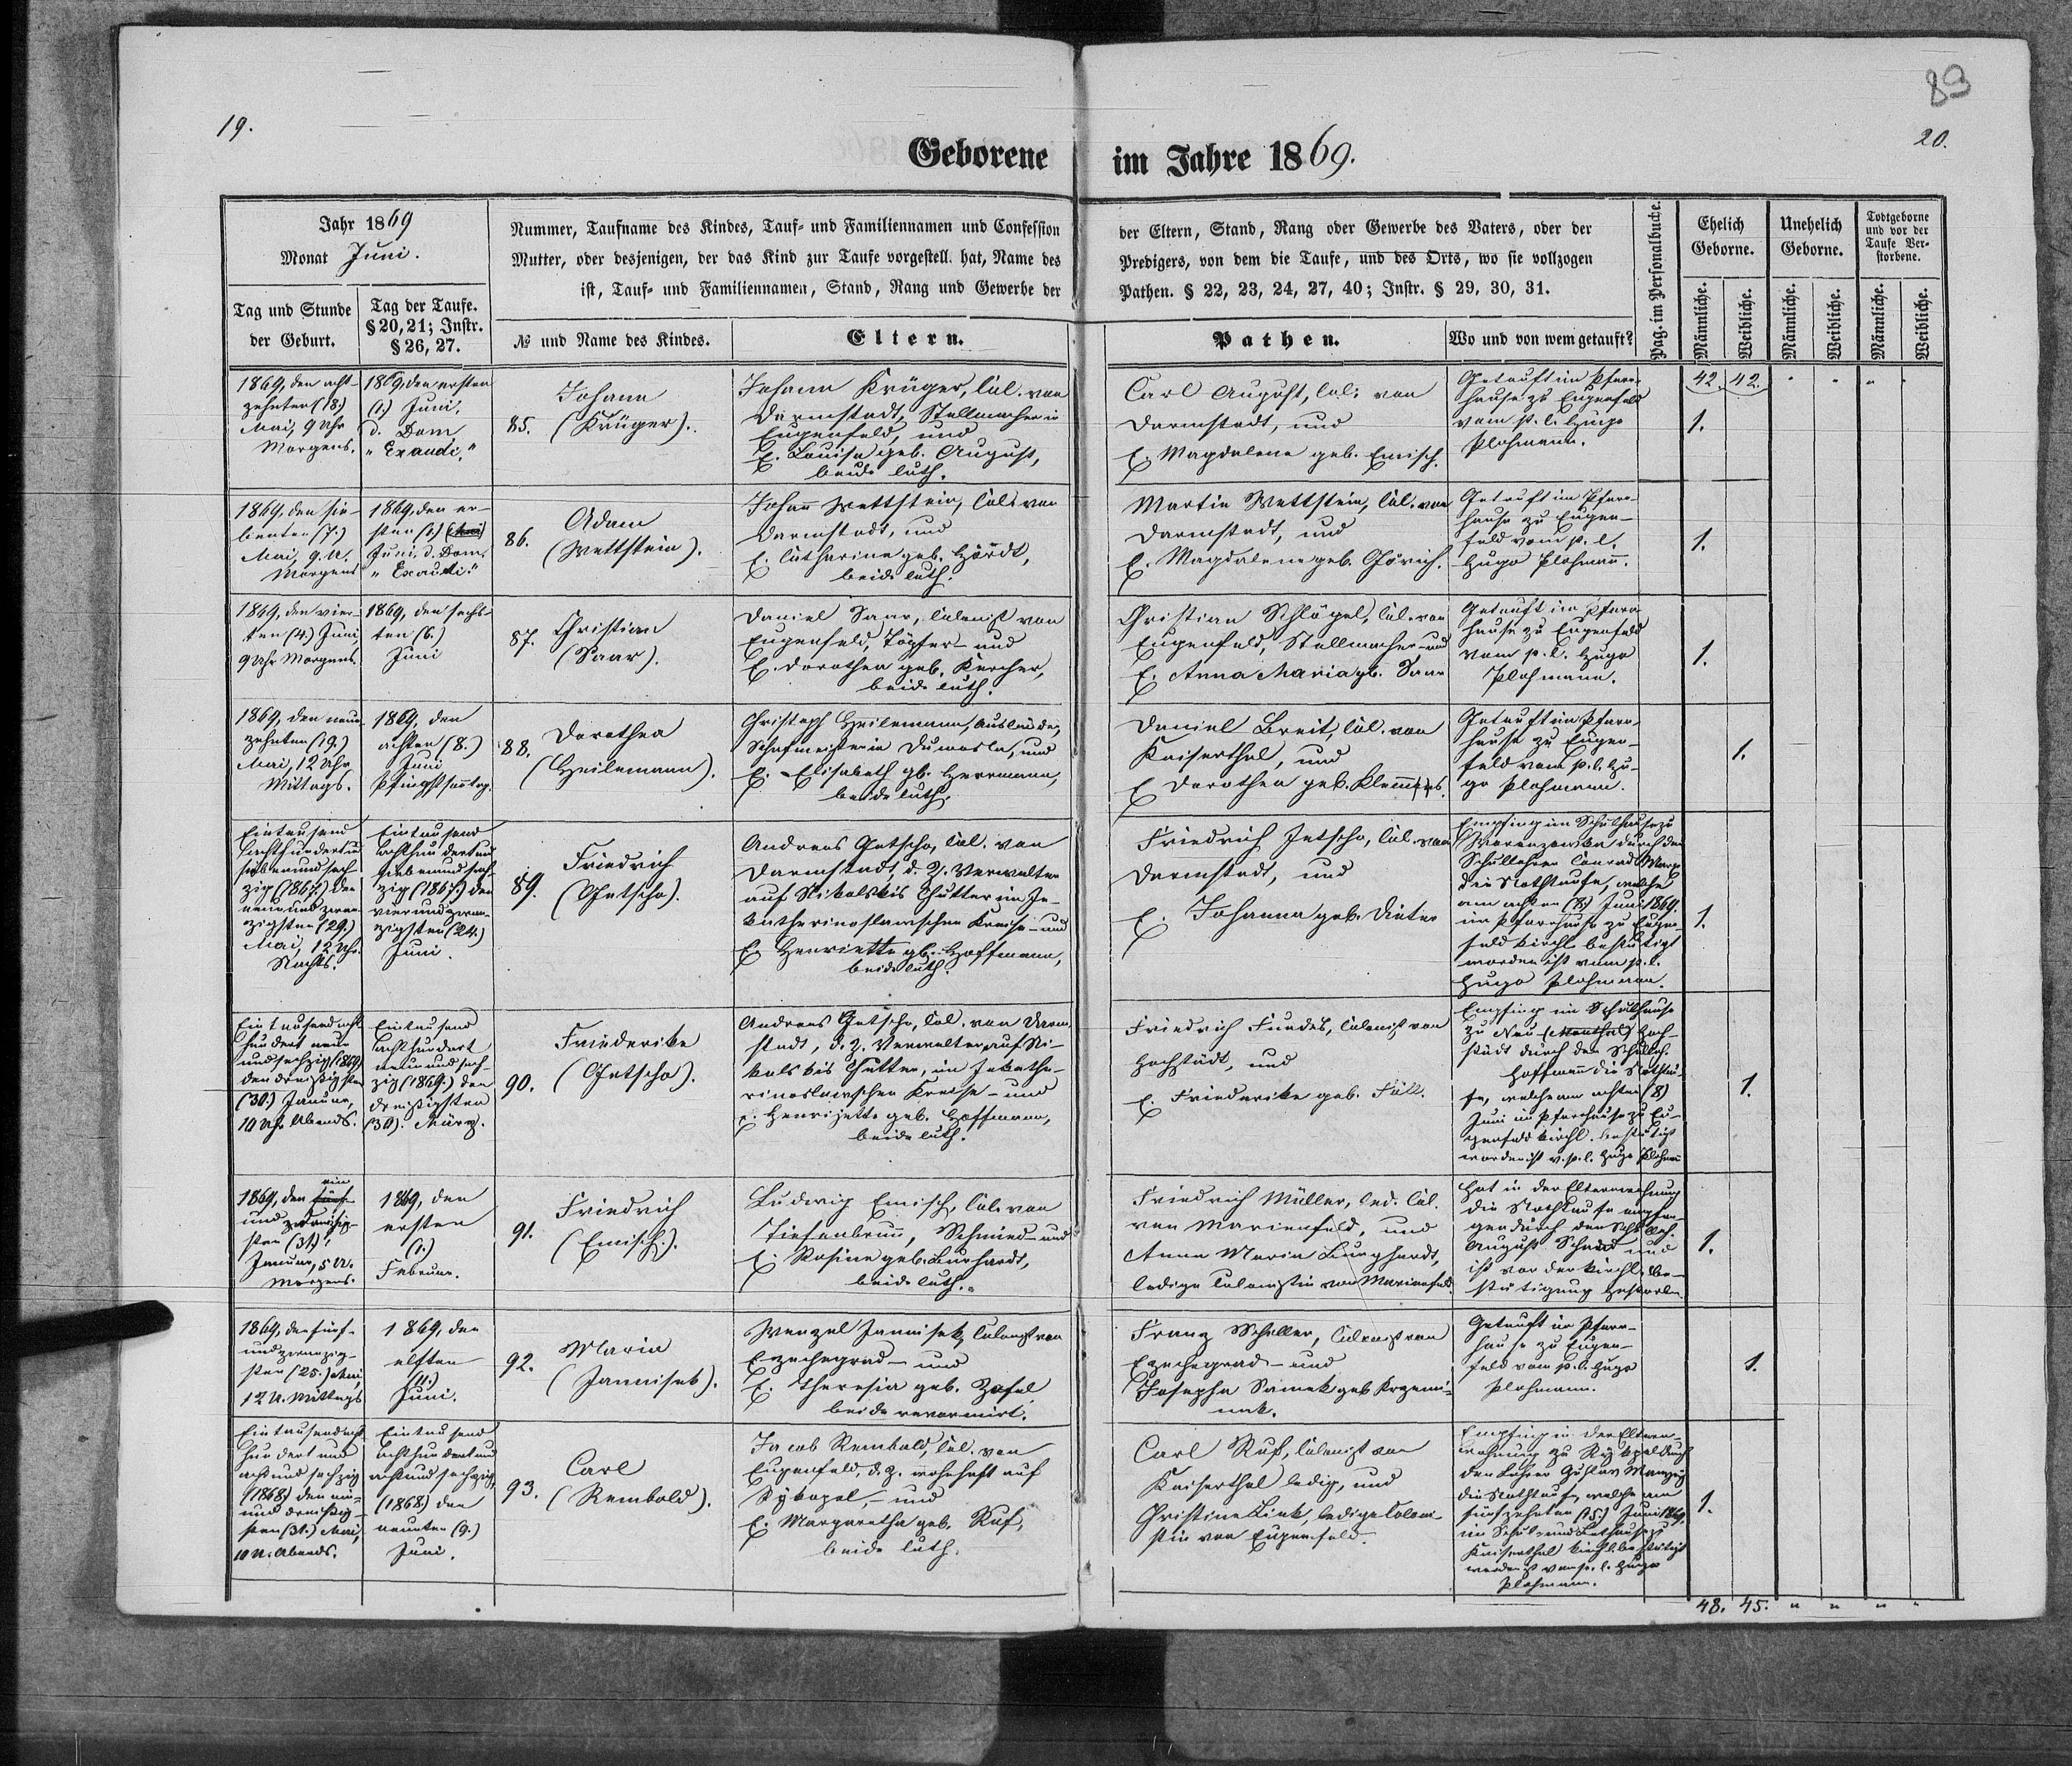 83
19.
20.
Geborene im Jahre 1869.
Jahr 1869
Monat Juni.
Tag und Stunde
der Geburt.
Tag der Taufe.
§ 20, 21; Instr.
§ 26, 27.
Nummer, Taufname des Kindes, Tauf- und Familiennamen und Confession
Mutter, oder desjenigen, der das Kind zur Taufe vorgestell. hat, Name des
ist, Tauf- und Familiennamen, Stand, Rang und Gewerbe der
№ und Name des Kindes.
Eltern.
der Eltern, Stand, Rang oder Gewerbe des Vaters, oder der
Predigers, von dem die Taufe, und des Orts, wo sie vollzogen
Pathen. § 22, 23, 24, 27, 40; Instr. § 29, 30, 31.
Pathen.
Wo und von wem getauft?
Pag. im Personalbuche.
Ehelich
Geborne.
Unehelich
Geborne.
Todtgeborne
und vor der
Taufe Ver-
storbene.
Männliche.
Weibliche.
Männliche.
Weibliche.
Männliche.
Weibliche.
42. 42.
1869, den acht-
zehnten (18.)
Mai, 9 Uhr
Morgens.
1869, den ersten
(1.) Juni.
d. Dom.
"Exaudi."
85.
Johann
(Krüger).
Johann Krüger, Col. von
Darmstadt, Stellmacher in
Eugenfeld, und
E. Louisa geb. August,
beide luth.
Carl August, Col. von
Darmstadt, und
E. Magdalena geb. Emisch.
Getauft im Pfarr-
hause zu Eugenfeld
vom p. l. Hugo
Plohmann.
1.
1869, den sie-
benten (7.)
Mai, 9 U.
Morgens
1869, den er-
sten (1.)
Juni. d. Dom.
"Exaudi."
86.
Adam
(Wettstein).
Johann Wettstein, Col. von
Darmstadt, und
E. Catharina geb. Hördt,
beide luth.
Martin Wettstein, Col. von
Darmstadt, und
E. Magdalena geb. Görich.
Getauft im Pfarr-
hause zu Eugen-
feld vom p. l.
Hugo Plohmann.
1.
1869, den vier-
ten (4.) Juni,
9 Uhr Morgens.
1869, den sechs-
ten (6.)
Juni
87.
Christian
(Saar).
Daniel Saar, Colonist von
Eugenfeld, Töpfer- und
E. Dorothea geb. Kercher,
beide luth.
Christian Schlögel, Col. von
Eugenfeld, Stellmacher- und
E. Anna Maria gb. Saar
Getauft im Pfarr-
hause zu Eugenfeld
vom p. l. Hugo
Plohmann.
1.
1869, den neun-
zehnten (19.)
Mai, 12 Uhr
Mittags.
1869, den
achten (8.)
Juni
Pfingstsonntag.
88.
Dorothea
(Heilemann).
Christoph Heilemann, Ausländer,
Schafmeister in Dumasla, und
E. Elisabeth gb. Herrmann,
beide luth.
Daniel Breit, Col. von
Kaiserthal, und
E. Dorothea geb. Klem
Getauft im Pfarr-
hause zu Eugen-
feld vom p. l. Hu-
go Plohmann.
1.
Eintausend
achthundertund
siebenundsech-
zig (1867.) den
neunundzwan-
zigsten (29.)
Mai, 12 Uhr
Nachts.
Eintausend
achthundertund
siebenundsech-
zig (1867.) den
vierundzwan-
zigsten (24.)
Juni.
89.
Friedrich
(Getscho).
Andreas Getscho, Col. von
Darmstadt, d. Z. Verwalter
auf Nikolskis Chutter im Je-
katherinoslawschen Kreise - und
E. Henriette gb. Hoffmann,
beide luth.
Friedrich Jetscho, Col. von
Darmstadt, und
E. Johanna geb. Dieter
Empfing im Schulhause zu
Woronzowka durch den
Schullehrer Conrad
die Nothtaufe, welche
am achten (8.) Juni 1869.
im Pfarrhause zu Eugen-
feld kirchl. bestätigt
worden ist vom p. l.
Hugo Plohmann.
1.
Eintausend acht-
hundert neun-
undsechzig (1869)
den dreißigsten
(30.) Januar,
10 Uhr Abends.
Eintausend
achthundert
neunundsech-
zig (1869.) den
dreißigsten
(30). März.
90.
Friederike
(Getscho).
Andreas Getscho, Col. von Darm-
stadt, d. Z. Verwalter auf Ni-
kolskis Chutter, im Jekathe-
rinoslawschen Kreise - und
E. Henrijette geb. Hoffmann,
beide luth.
Friedrich Fundes, Colonist von
Hochstädt, und
E. Friederike geb. Föll.
Empfing im Schulhause
zu Neu- Hoch-
städt durch den Schulleh.
Hoffmann die Nothtau-
fe, welche am achten (8)
Juni im Pfarrhause zu Eu-
genfeld kirchl. bestätigt
worden ist v. p. l. Hugo Plohmann
1.
1869, den ein-
und dreißig-
sten (31.)
Januar, 5 U.
Morgens.
1869, den
ersten
(1.)
Februar.
91.
Friedrich
(Emisch).
Ludwig Emisch, Col. von
Tiefenbrunn, Schmied - und
E. Rosina geb. Burghardt,
beide luth.
Friedrich Müller, led. Col.
von Marienfeld, und
Anna Maria Burghardt,
ledige Colonistin von Marienfeld.
Hat in der Elternwohnung
die Nothtaufe empfan-
gen durch den Schulleh.
August Schmid und
ist vor der kirchl. Be-
stätigung gestorben.
1.
1869, den fünf-
undzwanzig-
sten (25.) Mai,
12 U. Mittags
1869, den
elften
(11.)
Juni.
92.
Maria
(Jannisek).
Wenzel Jannisek, Colonist von
Czechegrad - und
E. Theresia geb. Zofal
beide revormirt.
Franz Scheller, Colonist von
Czechegrad - und
Josepha Samek geb. Krzemi-
nak.
Getauft im Pfarr-
hause zu Eugen-
feld vom p. l. Hugo
Plohmann.
1.
Eintausendacht-
hundert und
achtundsechzig
(1868) den ein-
und dreißig-
sten (31.) Mai,
10 U. Abends.
Eintausend
achthundertund
achtundsechzig,
(1868.) den
neunten (9.)
Juni.
93.
Carl
(Rembold).
Jacob Rembold, Col. von
Eugenfeld, d. Z. wohnhaft auf
Rykopol, - und
E. Margaretha geb. Ruf,
beide luth.
Carl Ruf, Colonist von
Kaiserthal ledig, und
Christine Link, ledige Coloni-
stin von Eugenfeld.
Empfing in der Eltern-
wohnung zu Rykopol durch
den Lehrer Gustav
die Nothtaufe, welche am
fünfzehnten (15.) Juni 1869.
im Schul- und Bethause zu
Kaiserthal kirchl. bestätigt
worden ist vom p. l. Hugo
Plohmann.
1.
48. 45.